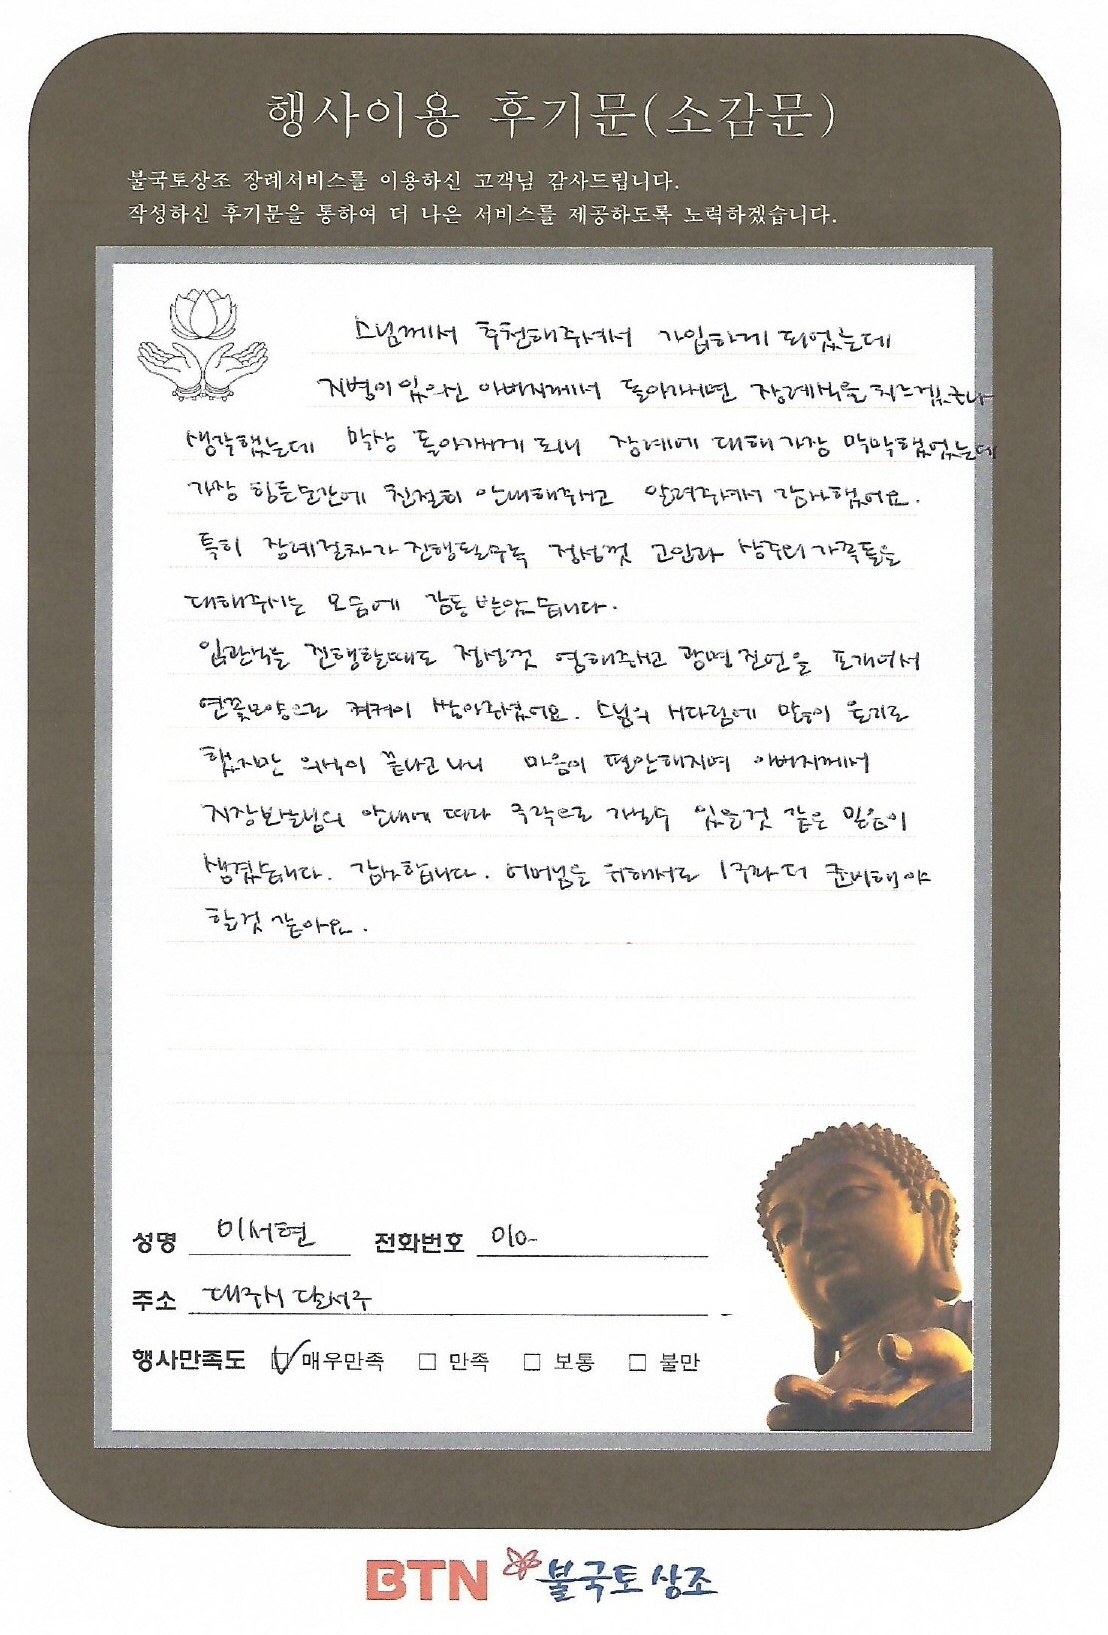 행사이용 후기문(소감문)
불국토상조 장례서비스를 이용하신 고객님 감사드립니다.
작성하신 후기문을 통하여 더 나은 서비스를 제공하도록 노력하겠습니다.
스님께서 추천해주셔서 가입하게 되었는데
지병이 있으신 아버지께서 돌아가시면 장례식을 치르겠구나
생각했는데 막상 돌아가시게 되니 장례에 대해 가장 막막했었는데
가장 힘든순간에 친절히 안내해주시고 알려주셔서 감사했어요.
특히 장례절차가 진행될수록 정성껏 고인과 상주의 가족들을
대해주시는 모습에 감동 받았습니다.
입관식을 진행할때도 정성껏 염해주시고 광명진언을 포개어서
연꽃모양으로 켜켜이 쌓아주셨어요. 스님의 시다림에 많이
했지만 의식이 끝나고 나니 마음이 편안해지며 아버지께서
지장보살님의 안내에 따라 극락으로 가실수 있을것 같은 믿음이
생겼습니다. 감사합니다. 어머님을 위해서도 1구좌 더 준비해야
할것 같아요.
성명 이서현 전화번호 010-
주소 대구시 달서구
행사만족도 매우만족 만족 보통 불만
BTN 불국토상조